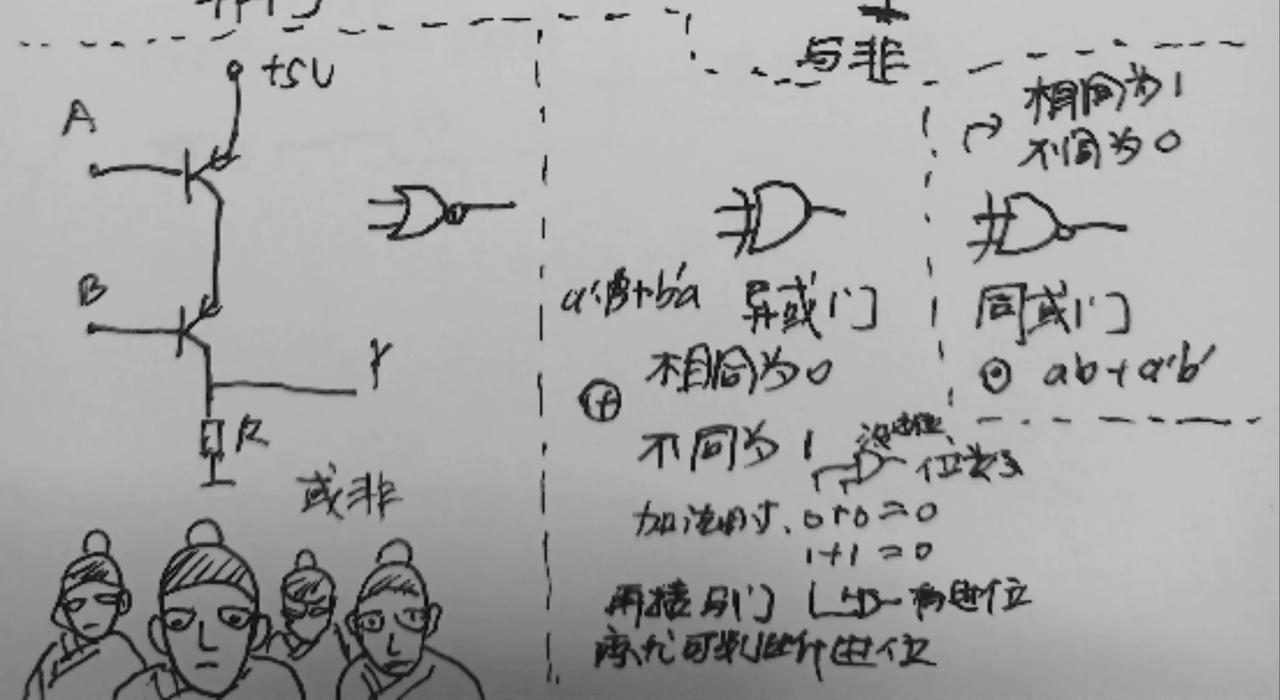 与非
+5V
A
B
Y
R
或非
a'B+b'a 异或门
相同为0
⊕
不同为1
没进位
位丢了
加法时. 0+0=0
1+1=0
再接与门 有进位
就可判断进位
相同为1
不同为0
同或门
⊙ ab+a'b'